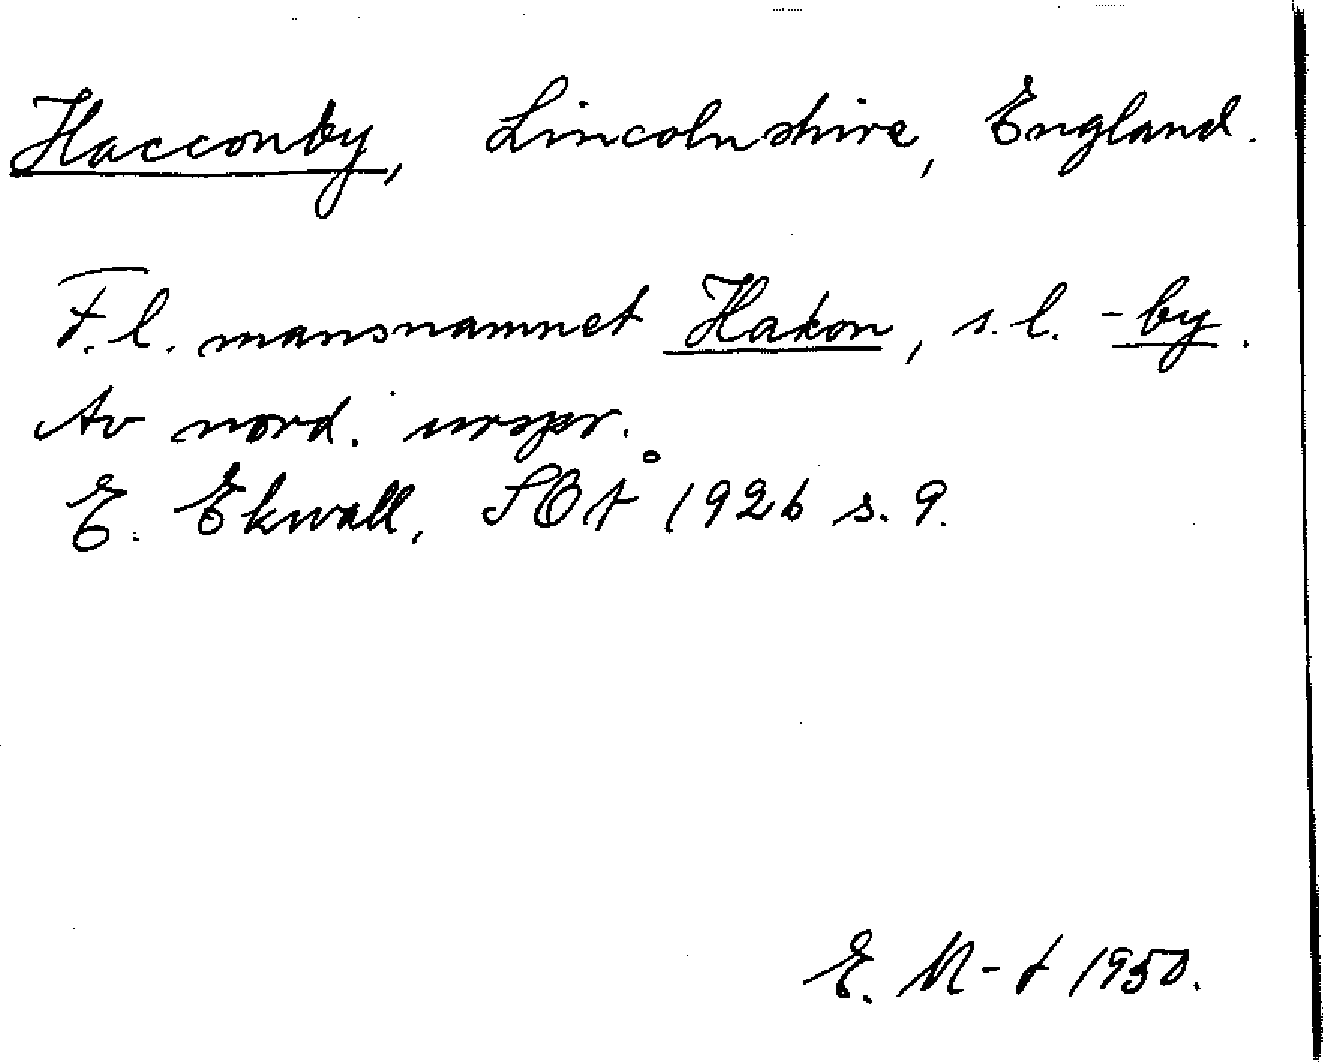 Hacconby, Lincolnshire, England.
F.l. mansnamnet Hakon, s.l. -by.
Av nord. urspr.
E. Ekwall, SOÅ 1926 s. 9.
E. M-t 1950.